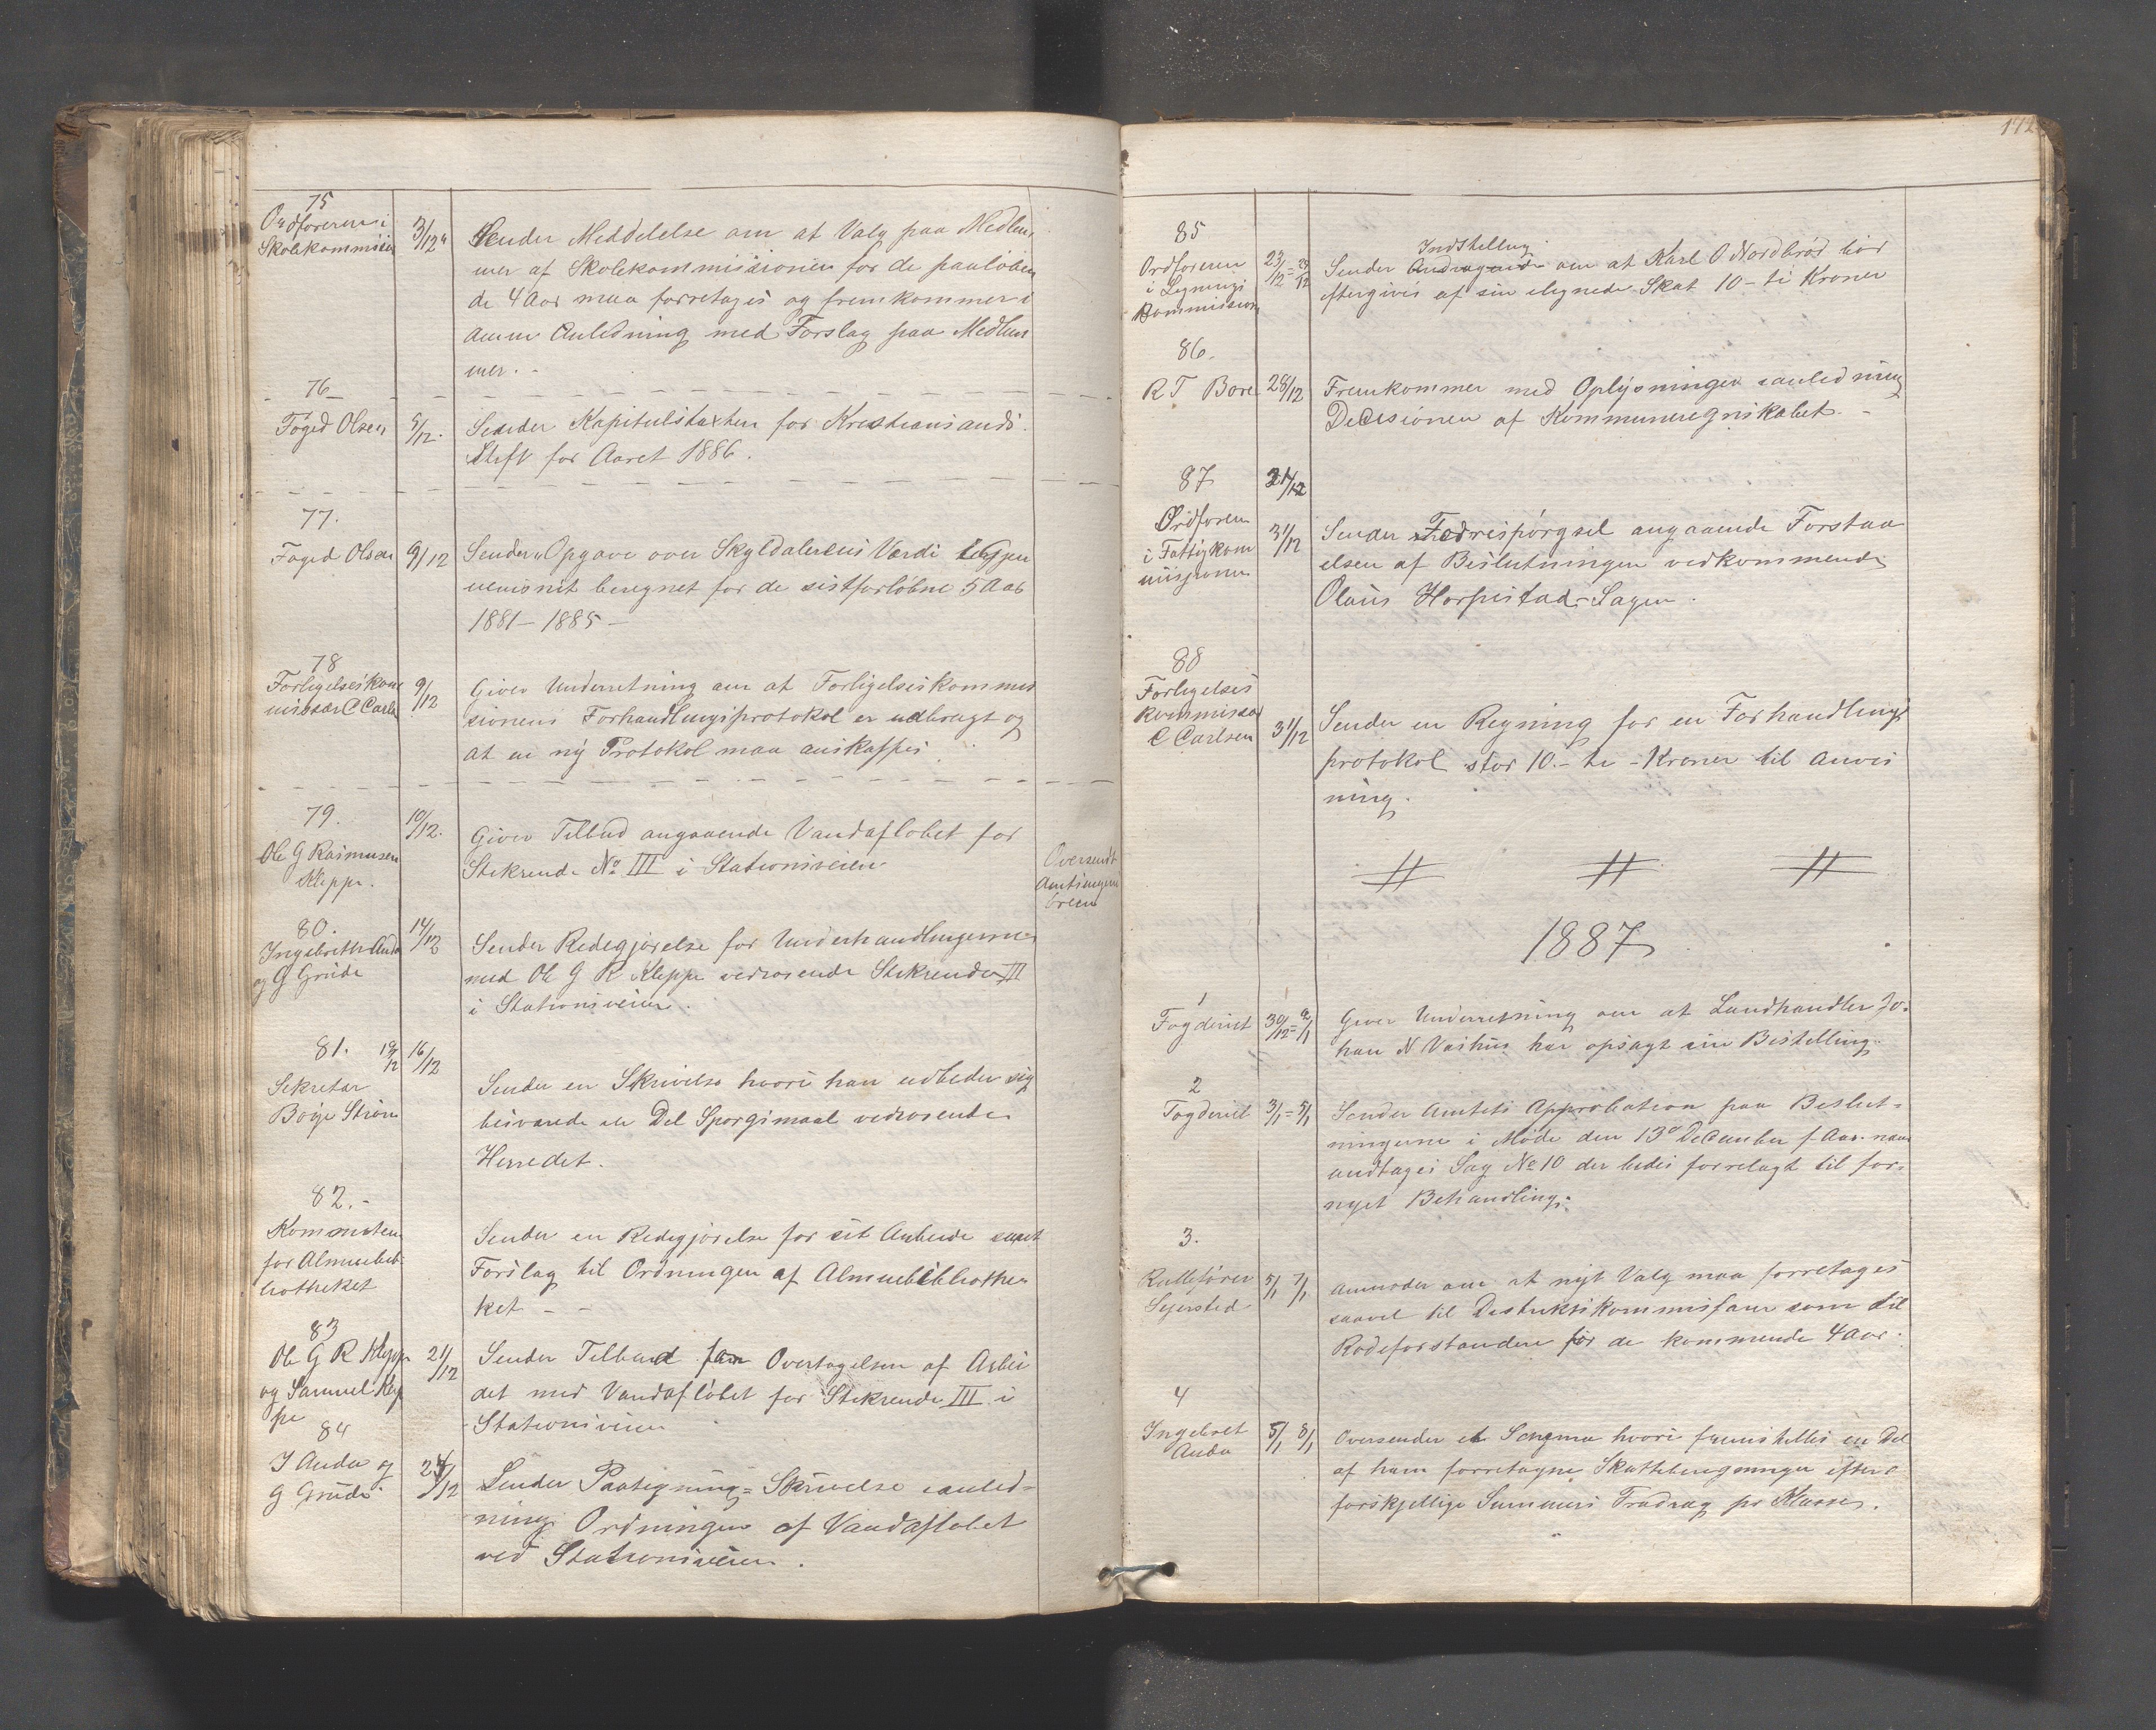 75
Ordføreren i
Skolekommisien
3/12
Sender Meddelelse om at Valg paa Medlem
mer af Skolekommissionen for de paaløben
de 4 Aar maa forretages og fremkommer i
Anledning med Forslag paa Medlem
mer. -
76
Foged Olsen
5/12.
Sender Kapitelstaxten for Kristiansands
Stift for Aaret 1886.
77.
Foged Olsen
9/12
Sender Opgave over Skylddalerens Værdi
beregnet for de sistforløbne 5 Aar
1881 - 1885 -
78
Forligelseskom
missær C Carls
9/12
Giver Underretning om at Forligelseskommis
sionens Forhandlingsprotokol er udbrugt og
at en ny Protokol maa anskaffes
79.
Ole G Rasmusen
Kleppe.
10/12.
Giver Tilbud angaaende Vandafløbet for
Stikrende No III i Stationsveien
Oversendt
Amtsingeni
80.
Ingebreth Auda
og G Grude
14/12
Sender Redegjørelse for Underhandlingerne
med Ole G R Kleppe vedrørende Stikrenden III
i Stationsveien.
81.
Sekretær
Boye Strøm
16/12
Sender en Skrivelse hvori han udbeder sig
besvarede en Del Spørgsmaal vedrørende
Herredet.
82. -
Kommiteen
for Almuebib
liotheket
Sender en Redegjørelse for sit Arbeide samt
Forslag til Ordningen af Almuebibliothe
ket - -
83
Ole G R Kleppe
og Samuel Klep
pe
21/12
Sender Tilbud om Overtagelsen af Arbei
det med Vandafløbet for Stikrende III i
Stationsveien
84
I Auda og
G Grude
24/12
Sender Paategning = Skrivelse i anled-
ning Ordningen af Vandafløbet
ved Stationsveien.
172
85
Ordføreren
i Lignings
Kommission
23/12 = 29/12
Indstelling
Sender Andragende om at Karl O Nordbrød bør
eftergives af sin ilignede Skat 10 - ti Kroner
86.
R T Bore
28/12
Fremkommer med Oplysninger i anledning
Decisionen af Kommuneregnskabet. -
87
31/12
Ordføren
i Fattigkom
missionen
31/12
Sender Forespørgsel angaaende Forstaa
elsen af Beslutningen vedkommende
Olaus Horpestad-Sagen.
88
Forligelses
kommissær
C Carlsen
31/12
Sender en Regning for en Forhandlings
protokol stor 10.- ti - Kroner til Anvis
ning.
1887
1
Fogderiet
30/12 = 2/1
Giver Underretning om at Landhandler Jo-
han N Vashus har opsagt sin Bestilling.
2
Fogderiet
3/1 = 5/1
Sender Amtets Approbation paa Beslut-
ningerne i Møde den 13de December f. Aar. naar
undtages Sag No 10 der bedes forrelagt til for-
nyet Behandling.
3.
Rullefører
Sejersted
5/1 7/1
Anmoder om at nyt Valg maa forretages
saavel til Destriktskommissær som til
Rodeforstandere for de kommende 4 Aar.
4
Ingebret
Auda
5/1 8/1
Oversender et Schema hvori fremstilles en Del
af ham forretagne Skatteberegninger efter
forskjellige Summers Fradrag pr Klasse.